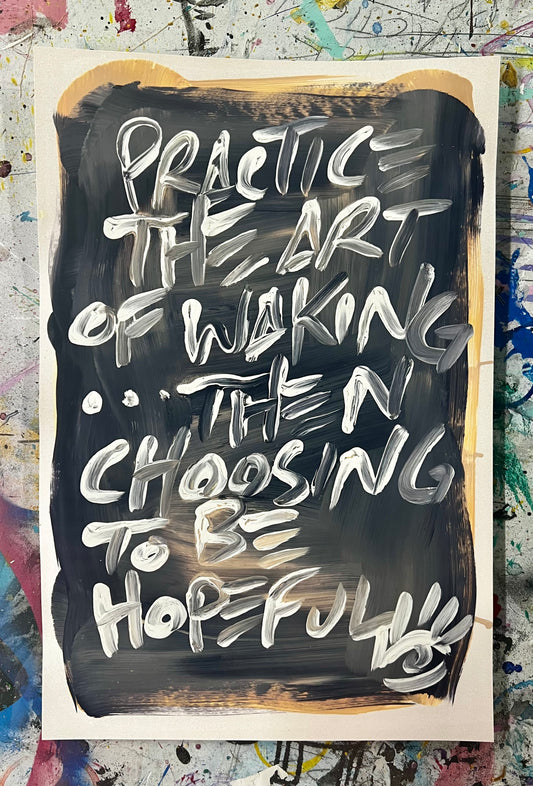 PRACTICE
THE ART
OF WAKING
... THEN
CHOOSING
TO BE
HOPEFUL